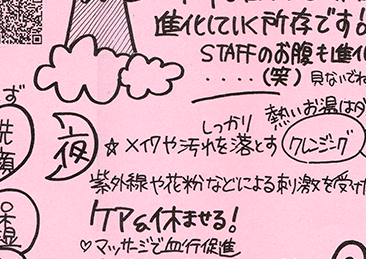 進化していく所存です!
STAFFのお腹も進化
・・・・・(笑) 見ないでね
熱いお湯はダ
ず
洗顔
夜
☆ メイクや汚れをしっかり落とす クレンジング
紫外線や花粉などによる刺激を受け
保湿
ケア&休ませる!
♡マッサージで血行促進